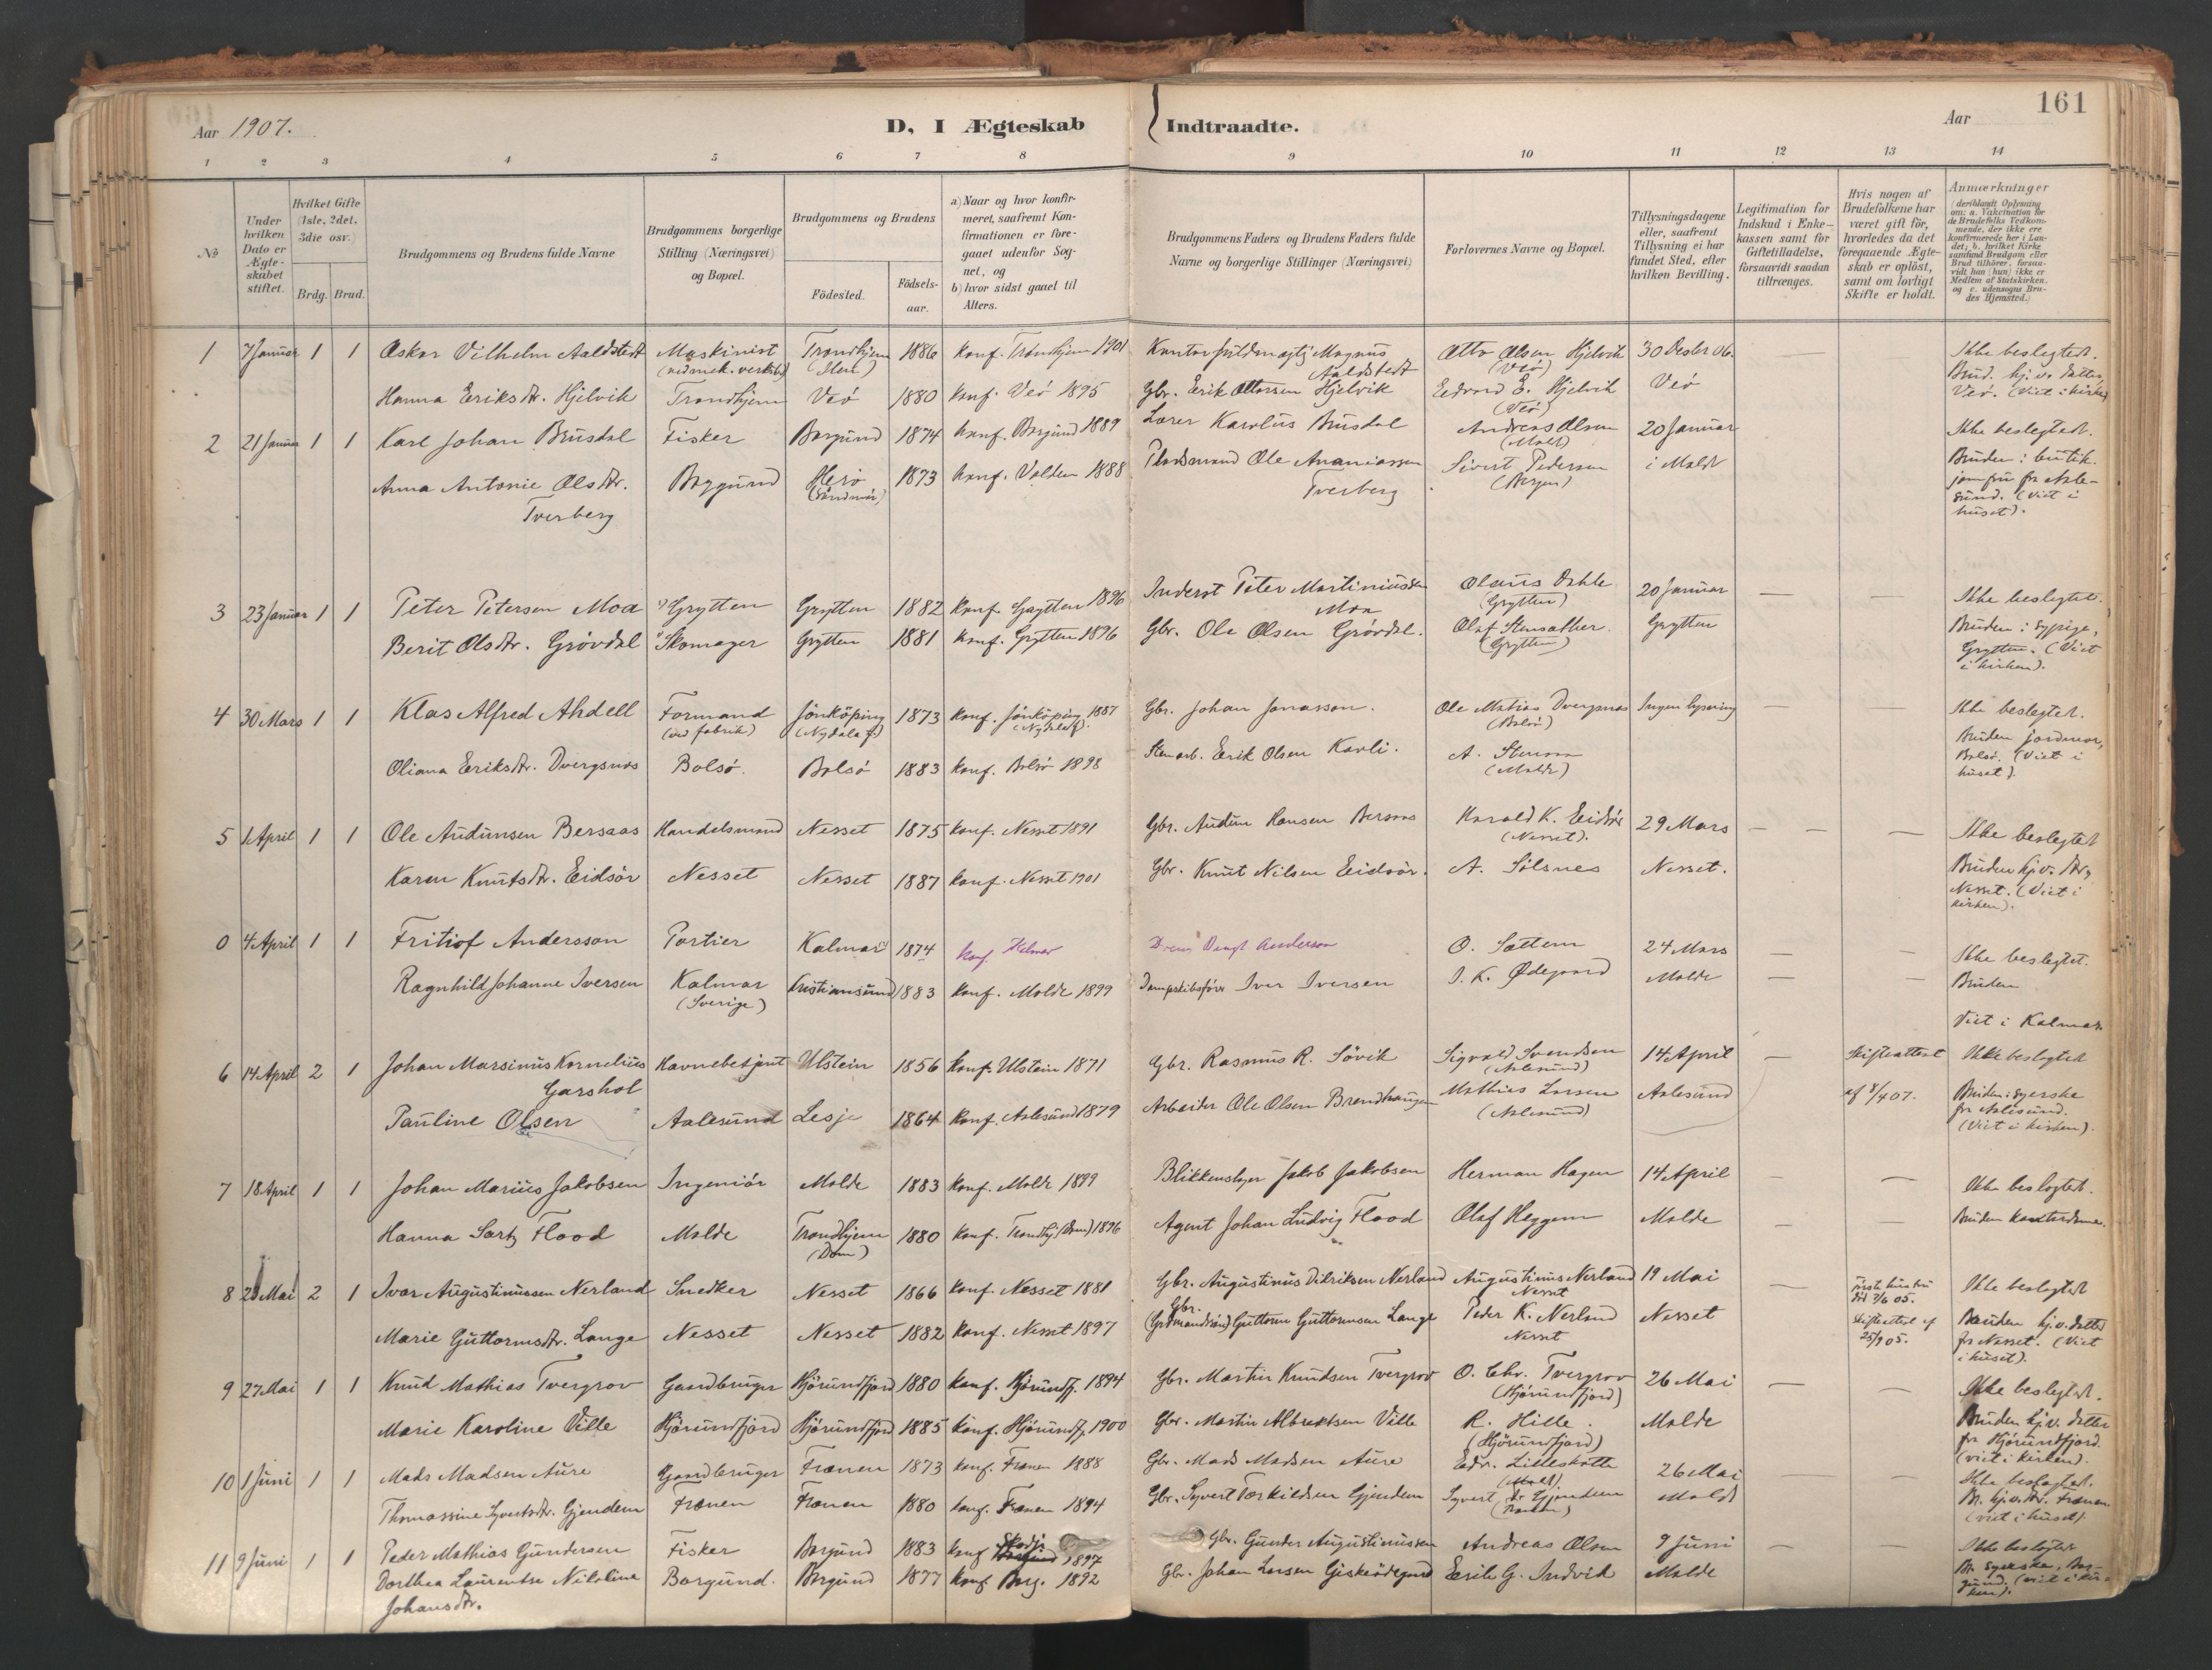 Aar 1907.
D, I Ægteskab
Indtraadte.
Aar
161
1 2 3 4 5 6 7 8 9 10 11 12 13 14
No
Under hvilken Dato er Ægteskabet stiftet.
Hvilket Gifte (1ste, 2det, 3die osv.)
Brdg. Brud.
Brudgommens og Brudens fulde Navne
Brudgommens borgerlige Stilling (Næringsvei) og Bopæl.
Brudgommens og Brudens
Födested.
Födsels-aar.
a) Naar og hvor konfirmeret, saafremt Konfirmationen er foregaaet udenfor Sognet, og
b) hvor sidst gaaet til Alters.
Brudgommens Faders og Brudens Faders fulde Navne og borgerlige Stillinger (Næringsvei)
Forlovernes Navne og Bopæl.
Tillysningsdagene eller, saafremt Tillysning ei har fundet Sted, efter hvilken Bevilling.
Legitimation for Indskud i Enkekassen samt for Giftetilladelse, forsaavidt saadan tiltrænges.
Hvis nogen af Brudefolkene har været gift för, hvorledes da det foregaaende Ægteskab er oplöst, samt om lovligt Skifte er holdt.
Anmærkninger (deriblandt Oplysning om: a. Vakcination for de Brudefolks Vedkommende, der ikke ere konfirmerede her i Landet; b. hvilket Kirkesamfund Brudgom eller Brud tilhörer, forsaavidt han (hun) ikke er Medlem af Statskirken. og c. udensogns Brudes Hjemsted.)
1 7 Januar 1 1 Oskar Vilhelm Aaldstedt Maskinist (ved mek. verksted) Trondhjem (Ilen) 1886 Konf. Trondhjem 1901 Kontorfuldmægtig Magnus Aaldstedt Otto Olsen Hjelvik (Veö) 30 Desbr 06. — — Ikke beslegtet.
Hanna Eriksdtr. Hjelvik Trondhjem Veö 1880 Konf. Veö 1895 Gbr. Erik Ottersen Hjelvik Edvard E. Hjelvik (Veö) Veö Brud. hj.v. datter, Veö. (Viet i kirken)
2 21 Januar 1 1 Karl Johan Brusdal Fisker Borgund 1874 Konf. Borgund 1889 Lærer Karolus Brusdal Andreas Olsen (Molde) 20 Januar Ikke beslegtet.
Anna Antonie Olsdtr. Tverberg Borgund Herö (Söndmör) 1873 Konf. Volden 1888 Pladsmand Ole Ananiassen Tverberg Sivert Pedersen (Bergen) i Molde Bruden: butikjomfru fr Aalesund. (Viet i huset).
3 23 Januar 1 1 Peter Petersen Moa Grytten Grytten 1882 Konf. Grytten 1896 Inderst Peter Martiniussen Moa Olaus Dahle (Grytten) 20 Januar — — Ikke beslegtet.
Berit Olsdtr. Grövdal Skomager Grytten 1881 Konf. Grytten 1896 Gbr. Ole Olsen Grövdal. Olaf Stensæther (Grytten) Grytten Bruden: sypige, Grytten. (Viet i kirken).
4 30 Mars 1 1 Klas Alfred Ahdell Formand (ved fabrik) Jönköping (Nydala f.) 1873 Konf. Jönköping 1887 (Nydala f.) Gbr. Johan Jonasson. Ole Matias Dvergsnes (Bolsö) Ingen lysning — — Ikke beslegtet.
Oliana Eriksdtr. Dvergsnes Bolsö. Bolsö 1883 Konf. Bolsö 1898 Stenarb. Erik Olsen Karli. A. Stenson (Molde) Bruden jordmor, Bolsö. (Viet i huset).
5 1 April 1 1 Ole Audunsen Bersaas Handelsmand Nesset 1875 Konf. Nesset 1891 Gbr. Audun Hansen Bersaas Harald K. Eidsör (Nesset). 29 Mars — — — Ikke beslegtet
Karen Knutsdtr. Eidsör Nesset Nesset 1887 Konf. Nesset 1901 Gbr. Knut Nilsen Eidsör. A. Sölsnes Nesset. Bruden hj.v. dtr, Nesset. (Viet i kirken).
0 4 April 1 1 Fritiof Andersson Portier Kalmar 1874 Konf. Kalmar Dreng Bengt Anderson O. Sættem 24 Mars — — Ikke beslegtet.
Ragnhild Johanne Iversen Kalmar (Sverige) Kristiansund 1883 Konf. Molde 1899 Dampskibsförer Iver Iversen I. K. Ödegaard Molde — — Bruden
Viet i Kalmar.
6 14 April 2 1 Johan Marsinus Kornelius Garshol Havnebetjent Ulstein 1856 Konf. Ulstein 1871 Gbr. Rasmus R. Sövik Sigvald Svendsen (Aalesund) 14 April — Skifteattest Ikke beslegtet
Pauline Olsen Aalesund Lesje 1864 Konf. Aalesund 1879 Arbeider Ole Olsen Brendhaugen Mathias Larsen (Aalesund) Aalesund af 8/4 07. Bruden: syerske fr Aalesund. (Viet i kirken).
7 18 April 1 1 Johan Marius Jakobsen Ingeniör Molde 1883 Konf. Molde 1899 Blikkenslager Jakob Jakobsen Herman Hagen 14 April — — Ikke beslegtet.
Hanna Sartz Flood Molde Trondhjem (Dom) 1880 Konf. Trondhj. (Dom) 1896 Agent Johan Ludvig Flood Olaf Heggem Molde — — Bruden kontordame.
8 21 Mai 2 1 Ivar Augustinussen Nerland Snedker Nesset 1866 Konf. Nesset 1881 Gbr. Augustinus Didriksen Nerland Augustinus Nerland Nesset 19 Mai — förste hustru död 7/6 05. Ikke beslegtet
Marie Guttormsdtr. Lange Nesset Nesset 1882 Konf. Nesset 1897 Gbr. Guttorm Guttormsen Lange Peder K. Nerland Nesset Nesset Skifteattest af 25/9 05. Bruden hj.v. datter fr Nesset. (Viet i huset).
9 27 Mai 1 1 Knud Mathias Tvergrov Gaardbruger Hjörundfjord 1880 Konf. Hjörundfj. 1894 Gbr. Martin Knudsen Tvergrov O. Chr. Tvergrov (Hjörundfjord) 26 Mai — — Ikke beslegtet.
Marie Karoline Ville Hjörundfjord Hjörundfjord 1885 Konf. Hjörundfj. 1900 Gbr. Martin Albrektsen Ville R. Hille. (Hjörundfjord) Molde Bruden hj.v. datter fr Hjörundfjord. (viet i kirken).
10 1 Juni 1 1 Mads Madsen Aure Gaardbruger Frænen 1873 Konf. Frænen 1888 Gbr. Mads Madsen Aure Edv. Lilleskotte (Molde) 26 Mai — — Ikke beslegtet.
Thomassine Syvertsdtr. Gjendem Frænen Frænen 1880 Konf. Frænen 1894 Gbr. Syvert Torkildsen Gjendem Syvert Gjendem Molde Br. hj.v. dtr. Frænen (viet i huset).
11 9 Juni 1 1 Peder Mathias Gundersen Fisker Borgund 1883 Konf Skodje 1897 Gbr. Gunder Augustinussen Andreas Olsen 9 Juni — — Ikke beslegtet
Dorthea Laurentse Nikoline Johansdtr. Borgund. Borgund 1877 Konf Borg. 1892 Gbr. Johan Larsen Giskeödegaard Erik G. Indvik Molde Br. syerske, Borgund. (viet i kirken).